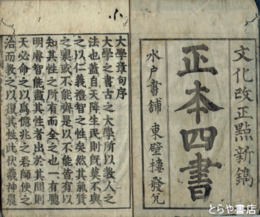 文化改正點新鐫
正本四書
水戸書舗 東壁樓發兌
小
大學章句序
大學之書古之大學所以教人之
法也蓋自天降生民則既莫不與
之以仁義禮智之性矣然其氣質
之稟或不能齊是以不能皆有以
知其性之所有而全之也一有聰
明睿智能盡其性者出於其間則
天必命之以爲億兆之君師使之
治而教之以復其性此伏羲神農
とらや書店